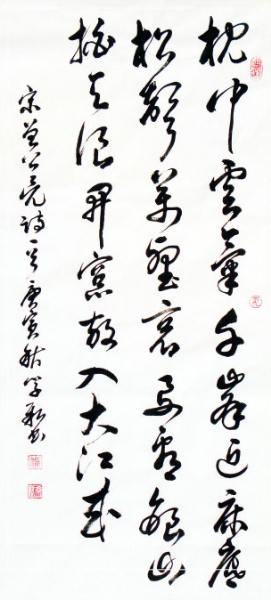 枕中雲氣千峯近床底
松聲萬壑哀要看銀山
拍天浪開窓放入大江來
宋曾公亮詩一首庚寅秋